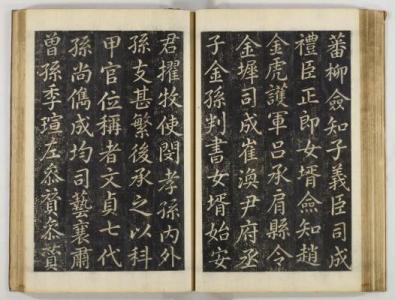 蕃柳僉知子義臣司成
禮臣正郎女壻僉知趙
金虎護軍呂承肩縣令
金墀司成崔渙尹府丞
子金孫判書女壻始安
君擢牧使閔孝孫內外
孫支甚繁後承之以科
甲官位稱者文貞七代
孫尚儁成均司藝襄肅
曾孫季瑄左叅贊叅贊